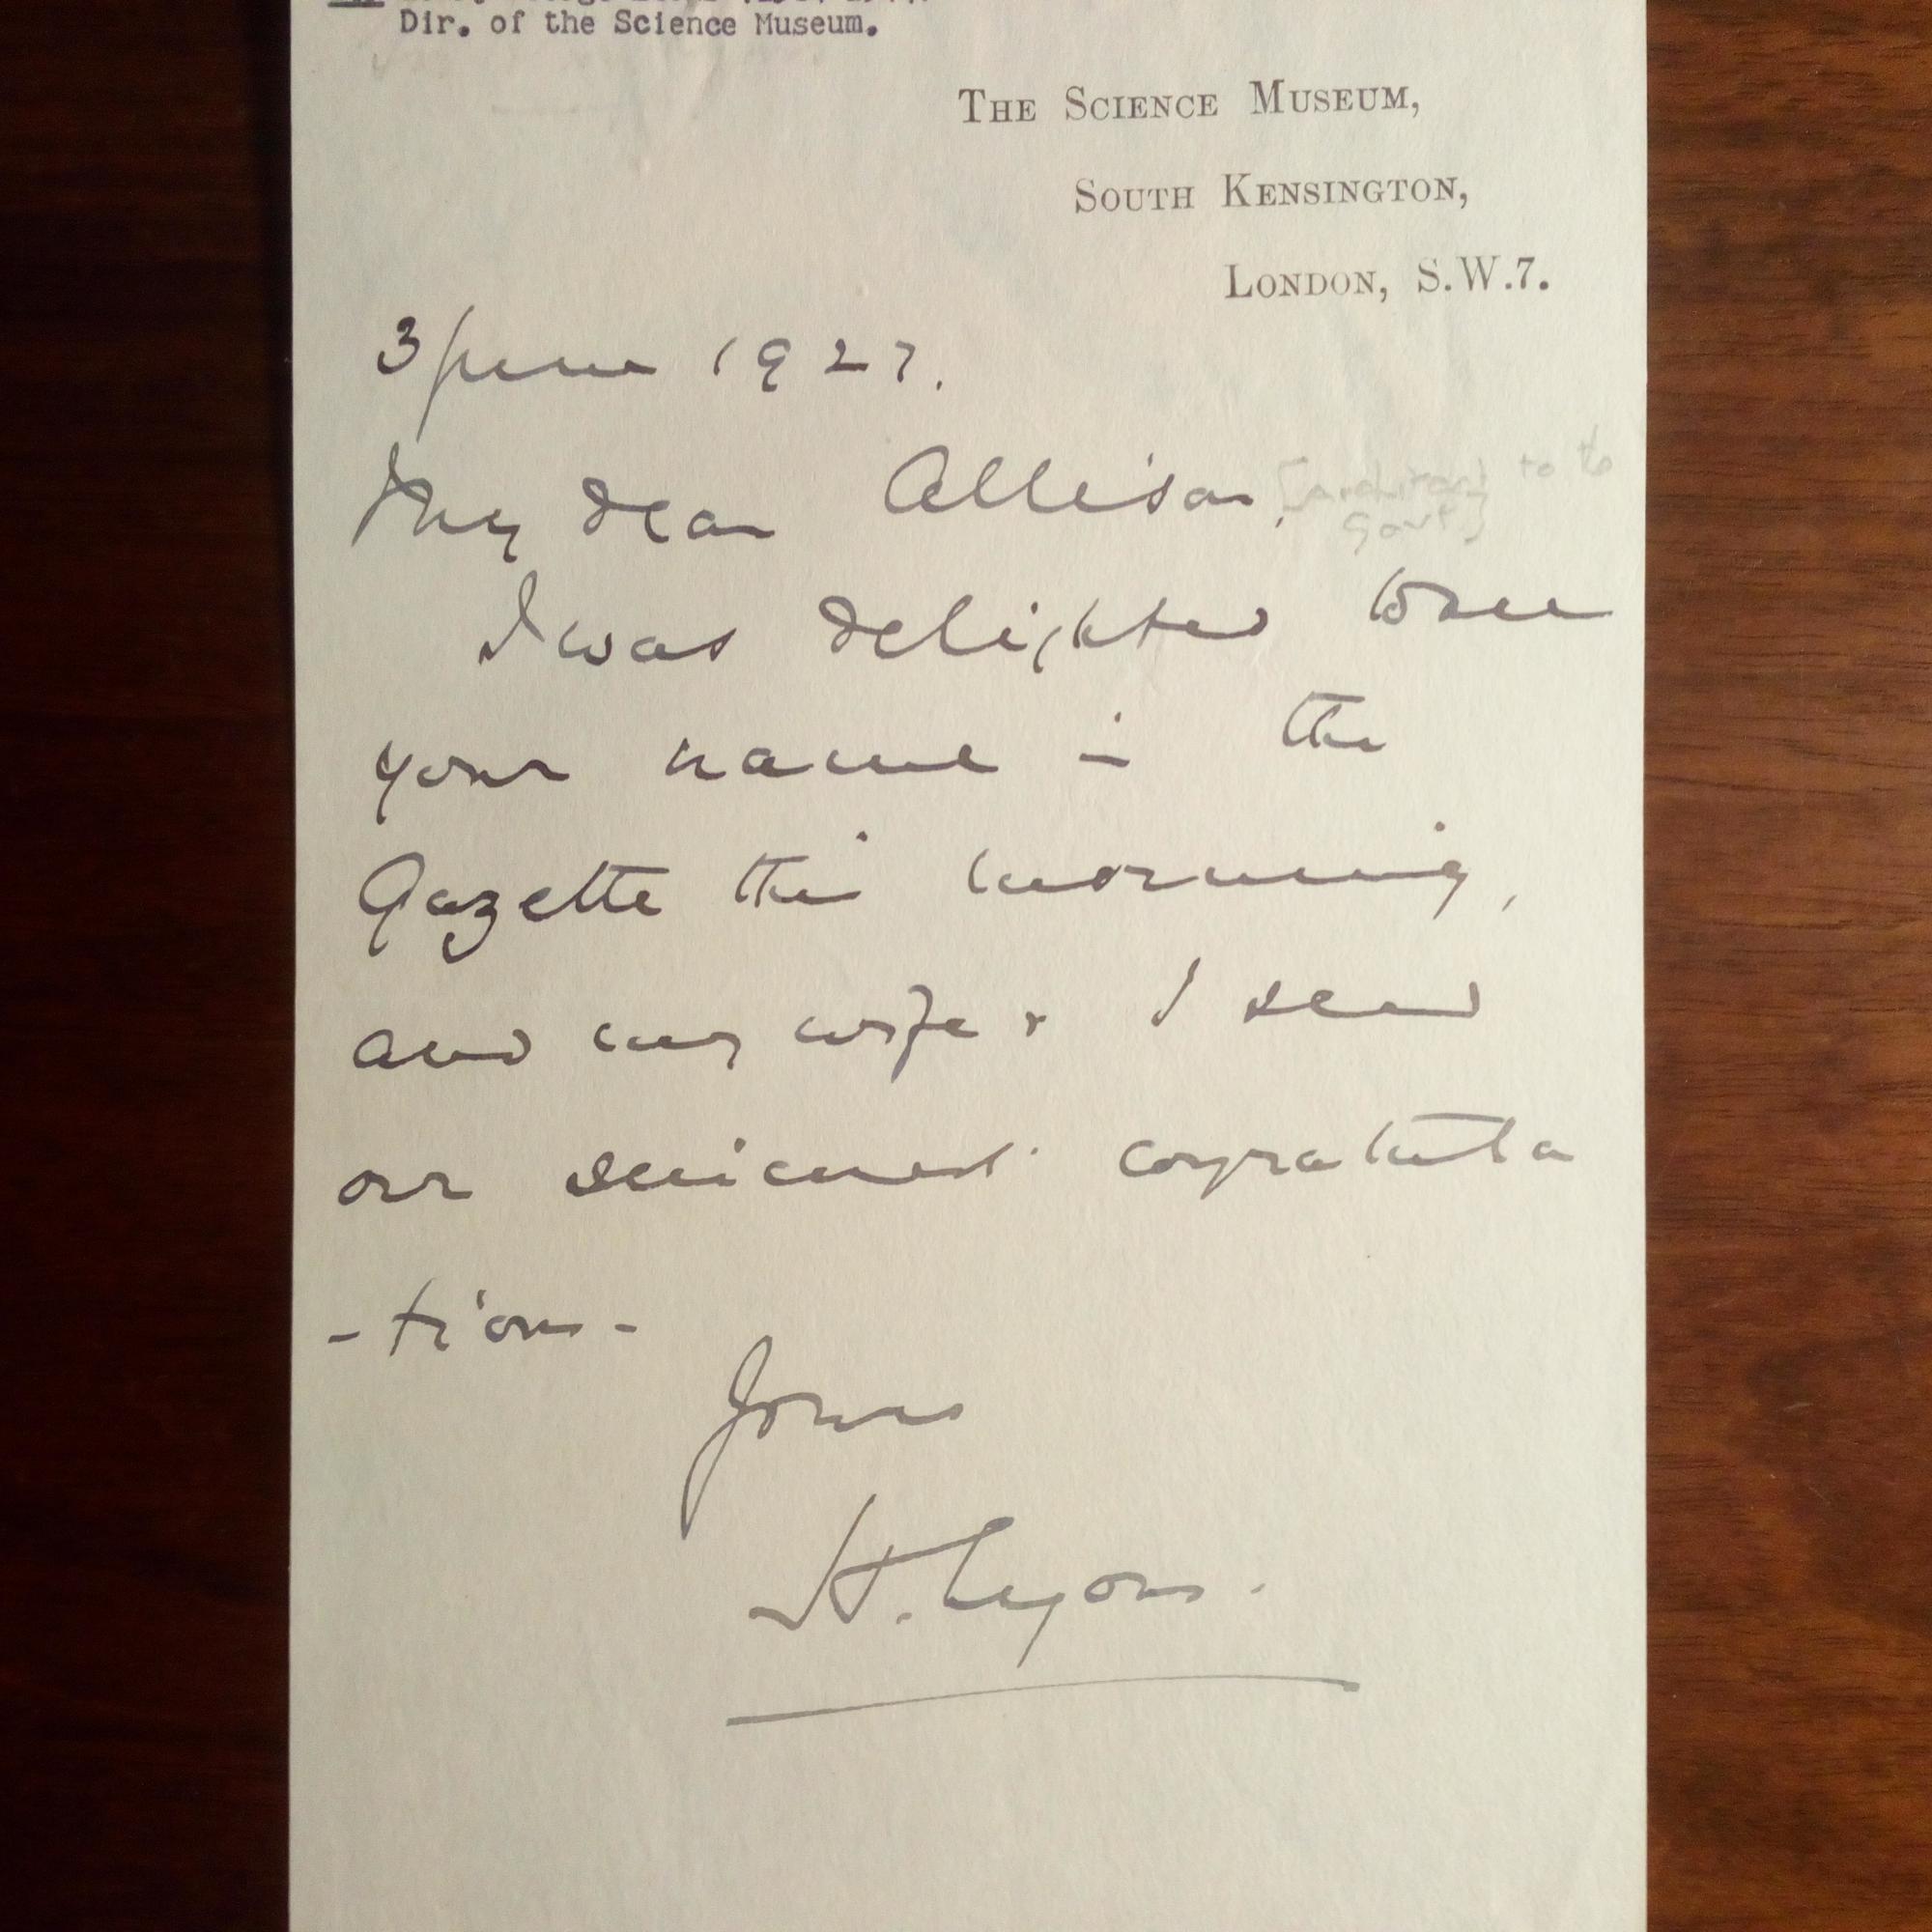 Dir. of the Science Museum.
THE SCIENCE MUSEUM,
SOUTH KENSINGTON,
LONDON, S.W.7.
3 June 1927.
My dear Allison, [architect to the
Govt]
I was delighted to see
your name in the
Gazette this morning,
and my wife & I send
our sincerest congratula
-tions-
Yours
H. Lyons.